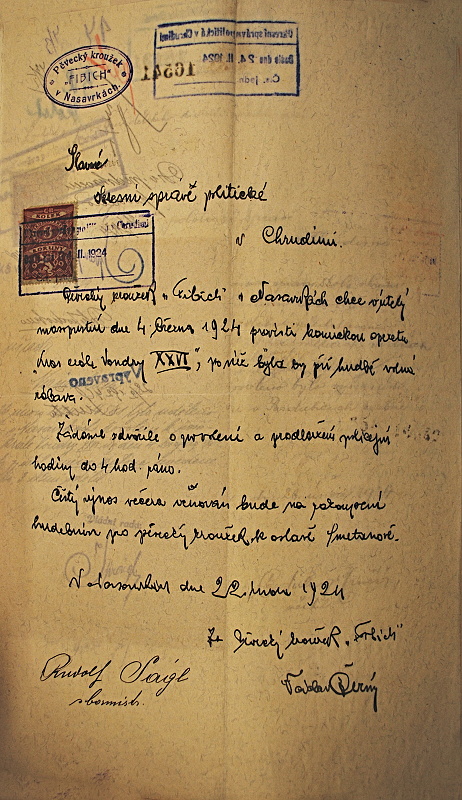 Pěvecký kroužek
"FIBICH"
v Nasavrkách.
Okresní správa politická v Chrudimi
Došlo dne 24. II. 1924
16541
Slavné
okresní správě politické
v Chrudimi.
KOLEK
3
KORUNY
Chrudimi
II. 1924
Pěvecký kroužek "Fibich" v Nasavrkách chce v úterý
masopustní dne 4. března 1924 provésti komickou operu
"Kvas krále Vondry XXVI", po níž byla by při hudbě volná
zábava.
Vypraveno
Žádáme zdvořile o povolení a prodloužení policejní
hodiny do 4 hod. ráno.
Čistý výnos večera věnován bude na
pro pěvecký kroužek k oslavě Smetanově.
V Nasavrkách dne 22. února 1924
Za pěvecký kroužek "Fibich"
Rudolf Ságl
sbormistr.
Václav Černý